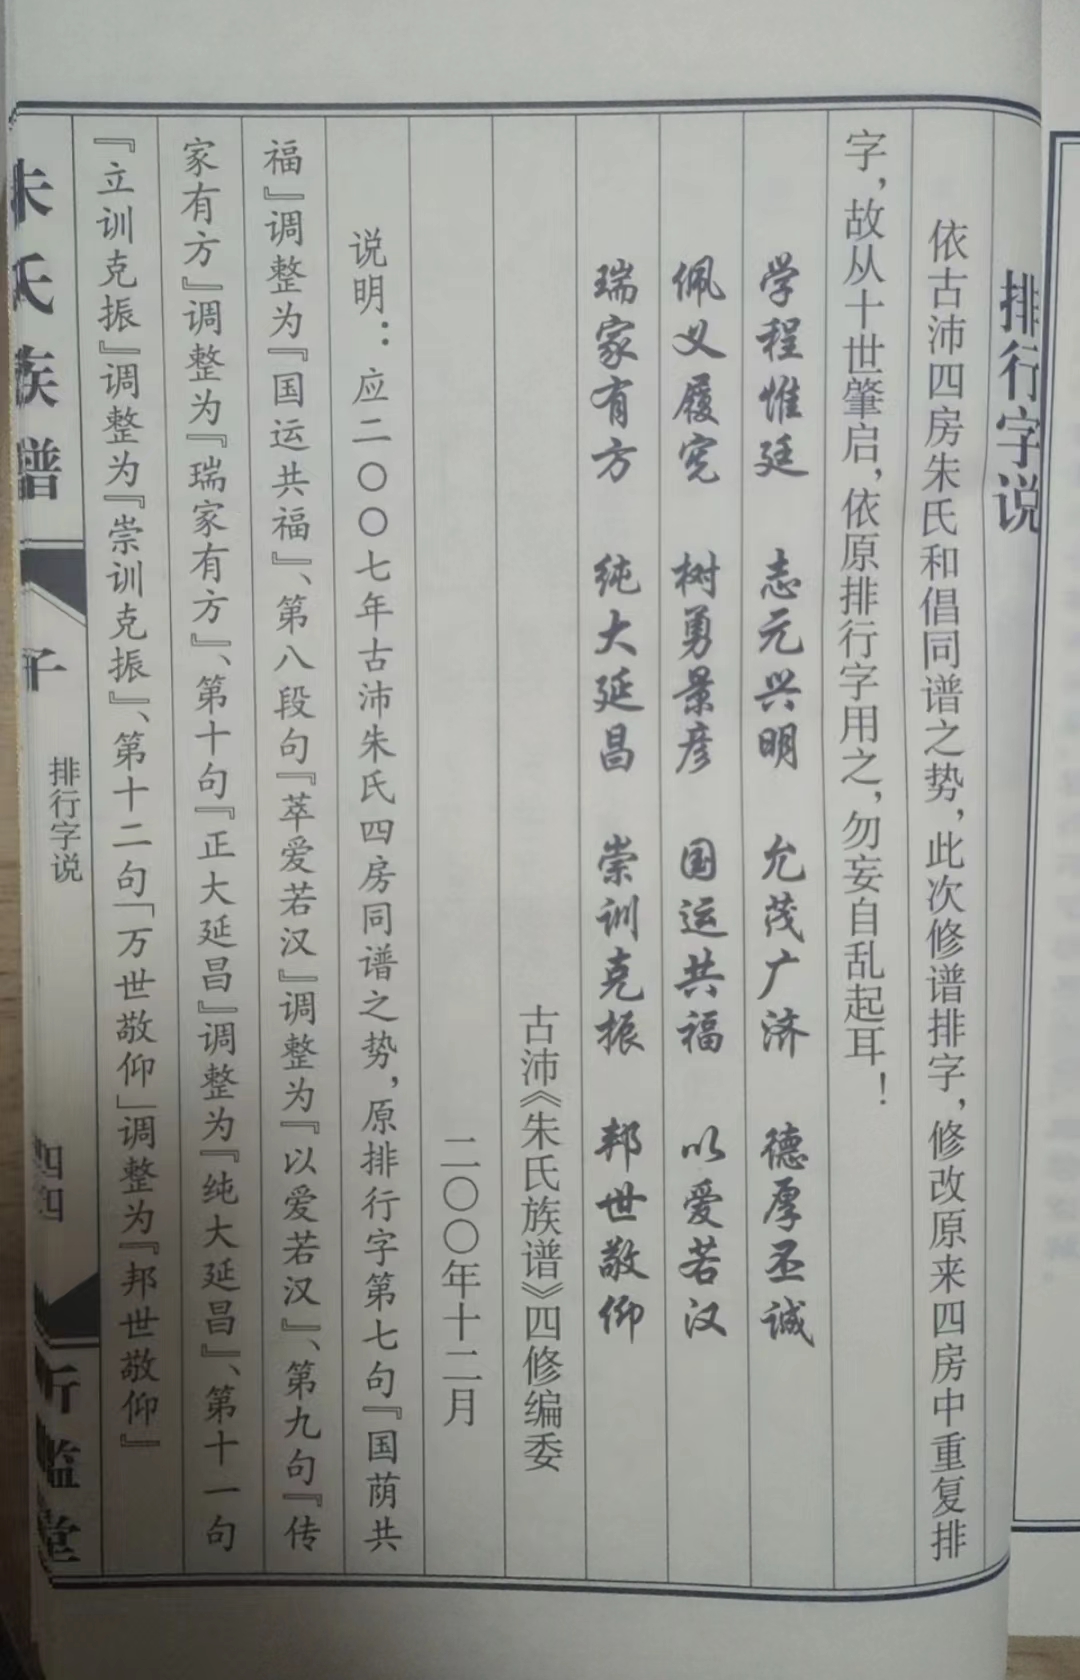 排行字说
依古沛四房朱氏和倡同谱之势，此次修谱排字，修改原来四房中重复排
字，故从十世肇启，依原排行字用之，勿妄自乱起耳！
学程惟廷　志元兴明　允茂广济　德厚丕诚
佩义履宪　树勇景彦　国运共福　以爱若汉
瑞家有方　纯大延昌　崇训克振　邦世敬仰
古沛《朱氏族谱》四修编委
二〇〇年十二月
说明：应二〇〇七年古沛朱氏四房同谱之势，原排行字第七句『国荫共
福』调整为『国运共福』、第八段句『萃爱若汉』调整为『以爱若汉』、第九句『传
家有方』调整为『瑞家有方』、第十句『正大延昌』调整为『纯大延昌』、第十一句
『立训克振』调整为『崇训克振』、第十二句「万世敬仰」调整为『邦世敬仰』
朱氏族谱
排行字说
四四